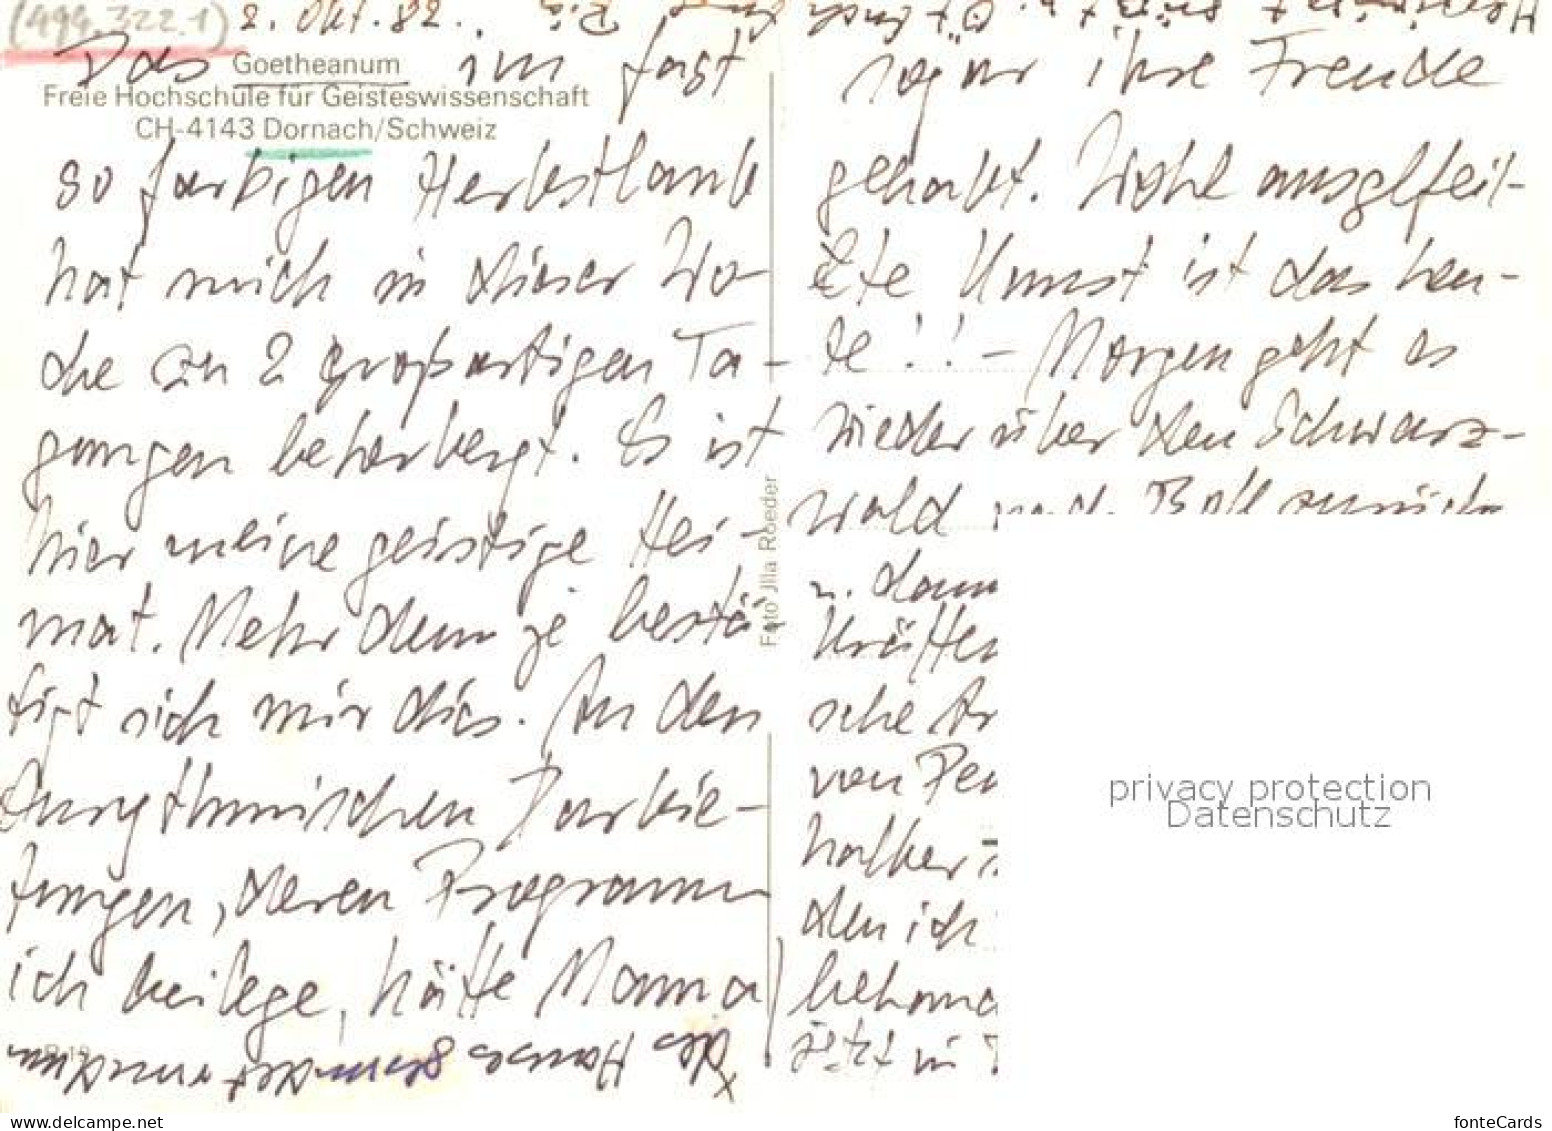 (499.322.1) 2. Okt. 82.
Das Goetheanum im fast
Freie Hochschule für Geisteswissenschaft
CH-4143 Dornach/Schweiz
so farbigen Herbstlaub
hat mich in dieser Wo-
che zu 2 großartigen Ta-
gungen beherbergt. Es ist
hier meine geistige Hei-
mat. Mehr denn je bestä-
tigt sich mir dies. An den
Eurythmischen Darbie-
tungen, deren Programm
ich beilege, hätte Mama
R 19
Foto Jlla Roeder
sogar ihre Freude
gehabt. Wohl ausgefeil-
te Kunst ist das heu-
te!! - Morgen geht es
wieder über den Schwarz-
wald nach Boll zurück
u. dann
Kräften
sche Ar
von Pen
halber
den ich
behand
jetzt in
des Hauses
privacy protection
Datenschutz
www.delcampe.net
fonteCards